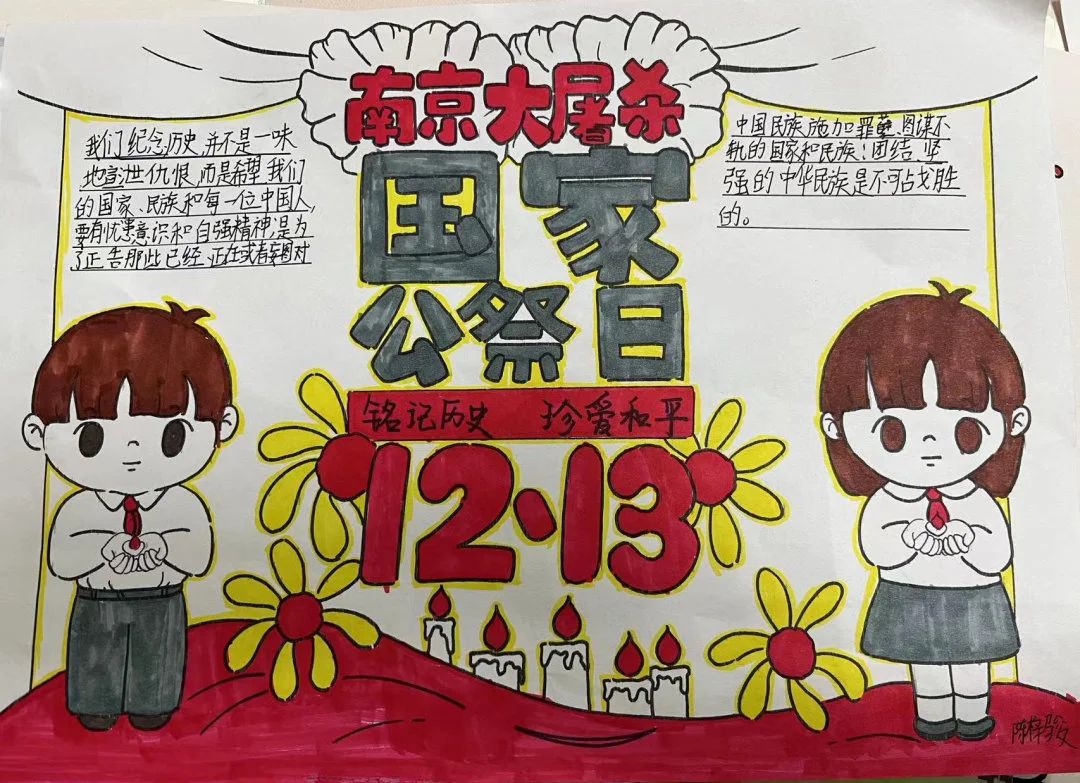 南京大屠杀
国家
公祭日
铭记历史 珍爱和平
12·13
我们纪念历史,并不是一味
地宣泄仇恨,而是希望我们
的国家、民族和每一位中国人,
要有忧患意识和自强精神,是为
了正告那些已经、正在或者妄图对
中国民族施加罪孽、图谋不
轨的国家和民族!团结、坚
强的中华民族是不可战胜
的。